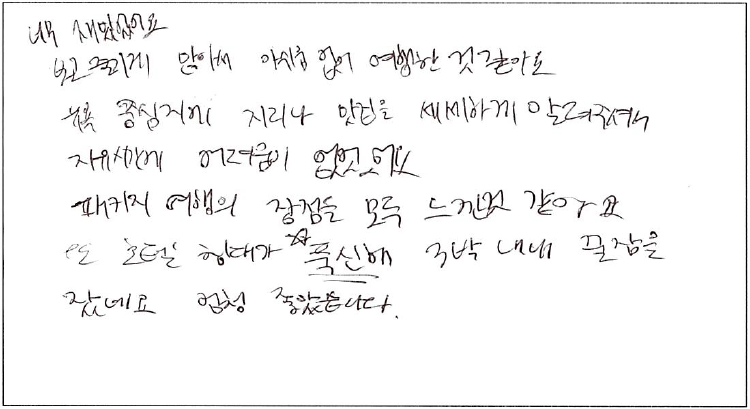 너무 재밌었어요
볼거리가 많아서 아쉬움 없이 여행한 것 같아요
중심지에 지리나 맛집을 세세하게 알려주셔서
자유시간에 어려움이 없었어요
패키지 여행의 장점을 모두 느낀것 같아요
또 호텔 침대가 ☆푹신해 3박 내내 꿀잠을
잤네요 엄청 좋았습니다.